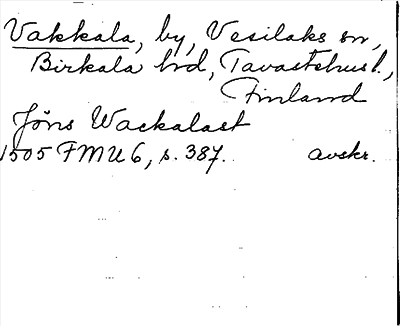 Vakkala, by, Vesilaks sn,
Birkala hd, Tavastehus l.,
Finland
Jöns Wackalast
1505 FMU 6, s. 387. avskr.